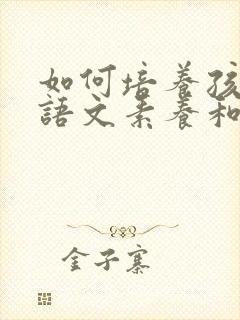 如何培養孩
語文素養和
金子寨